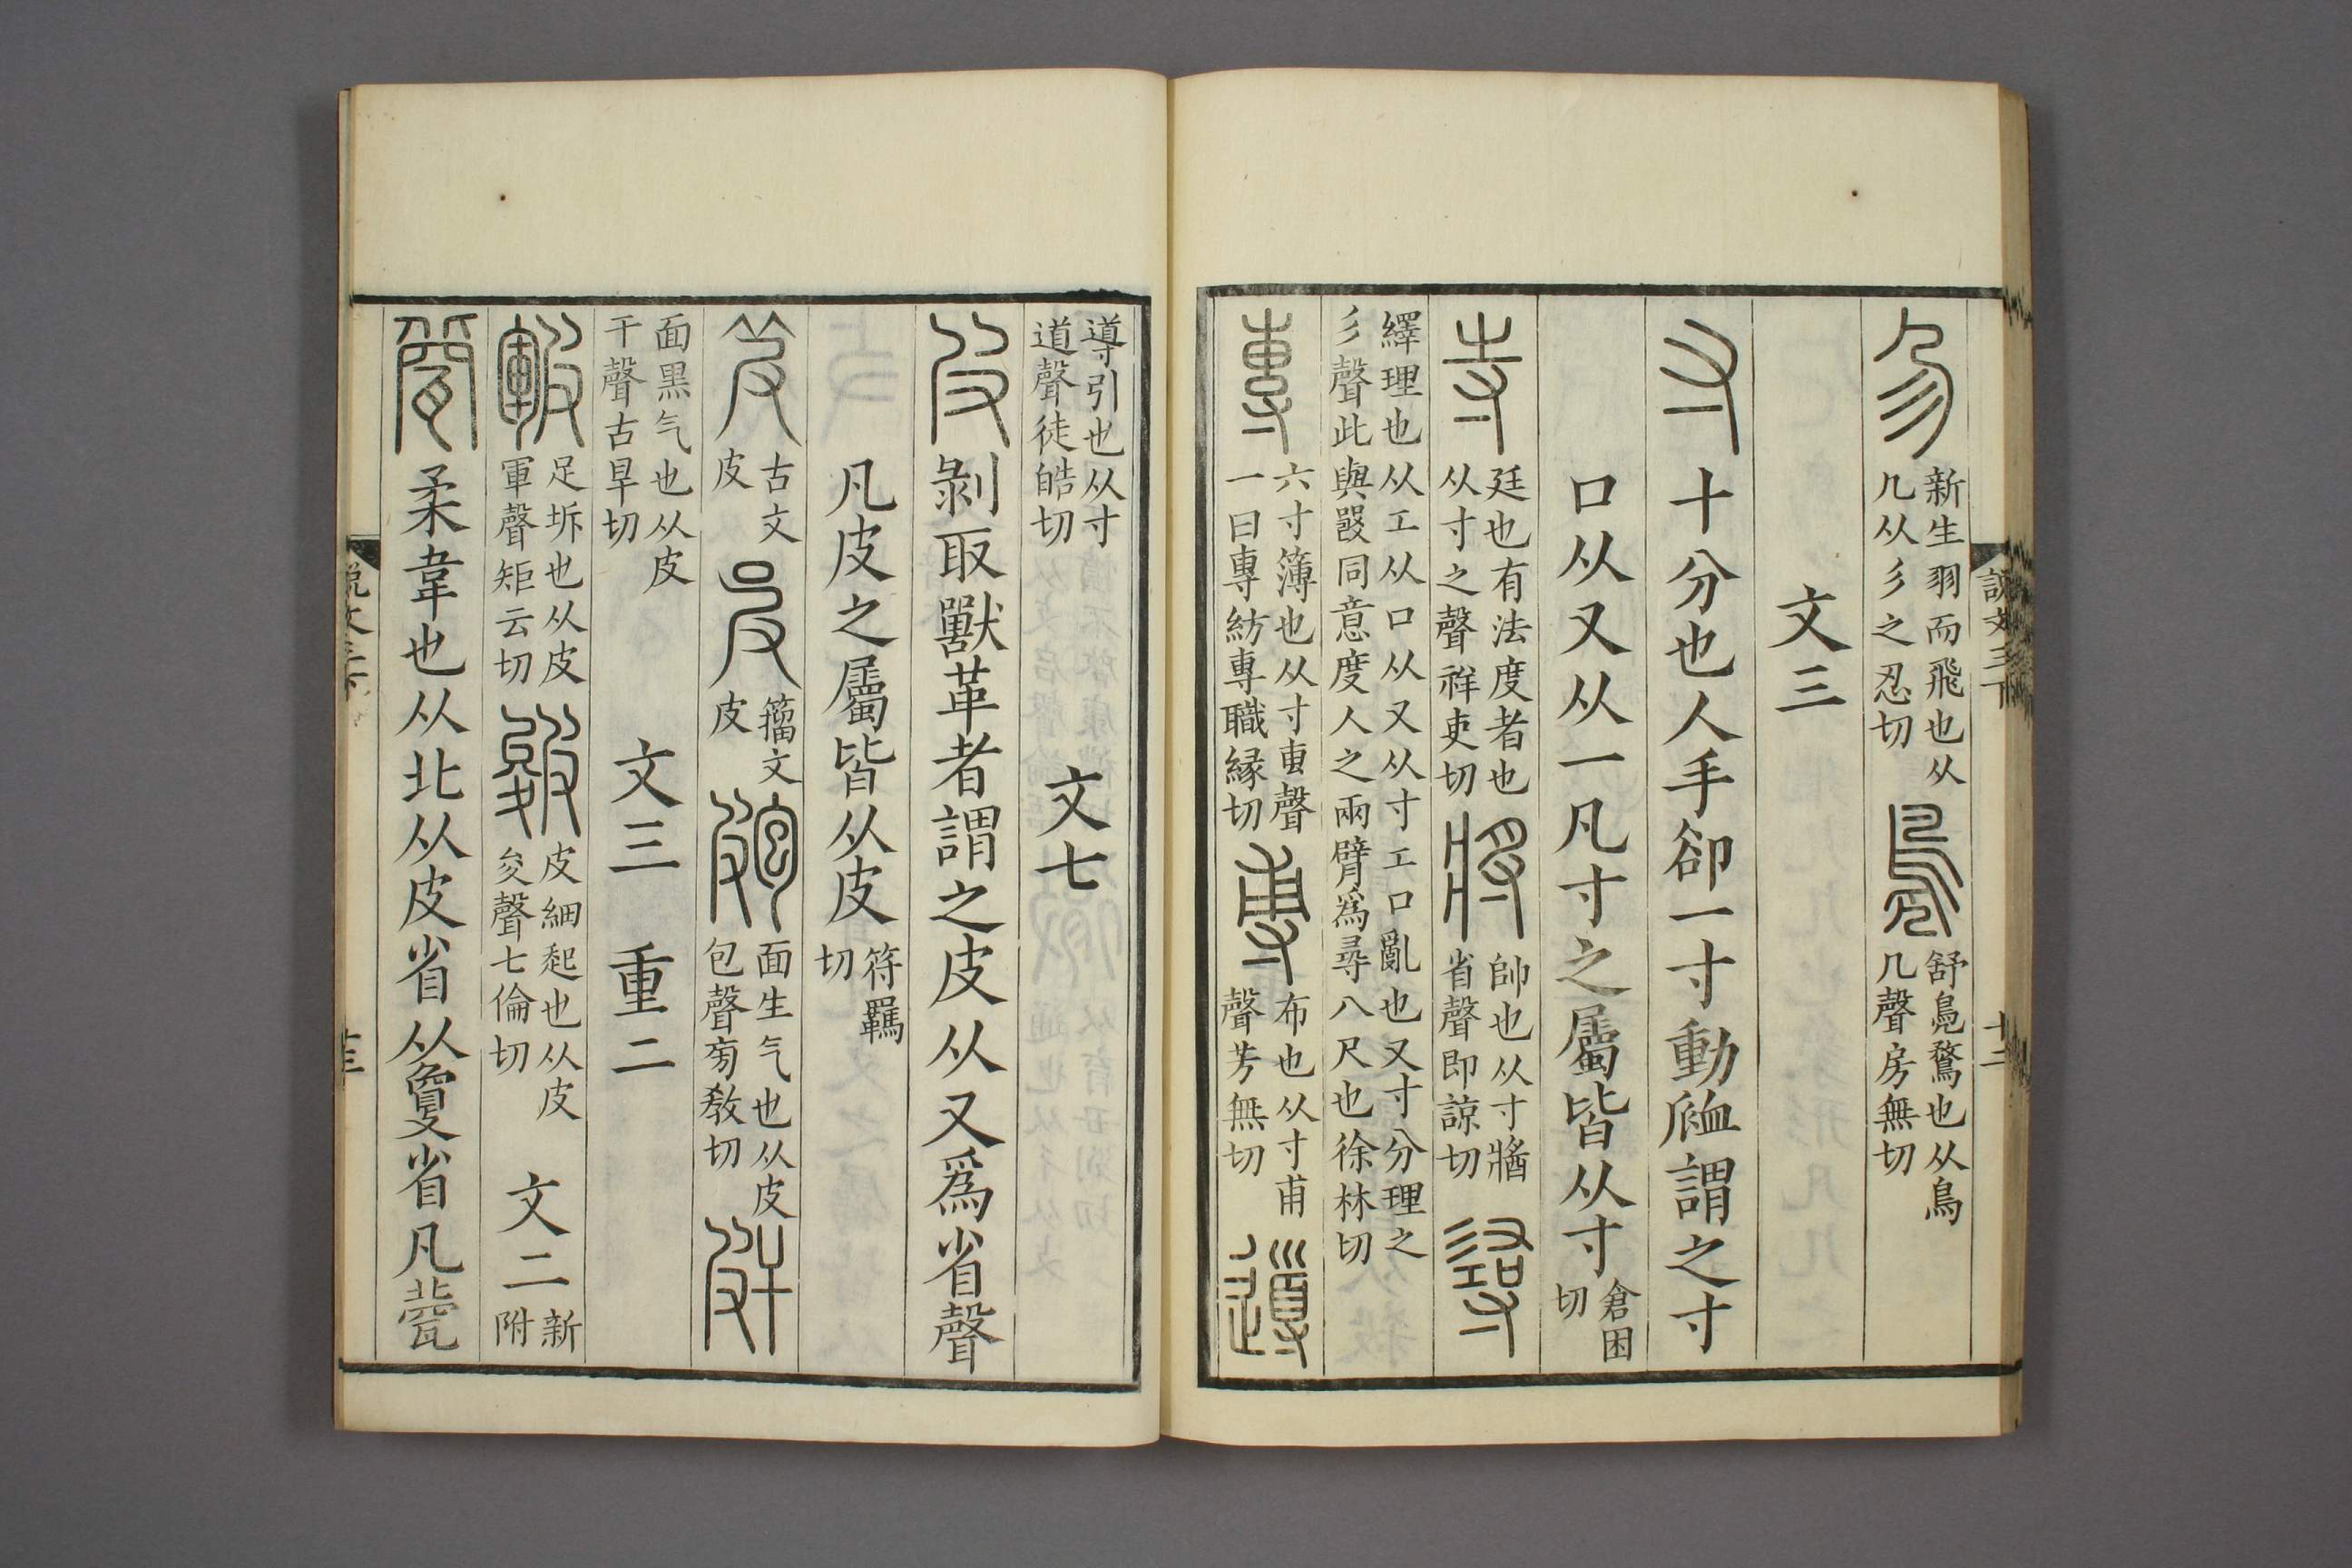 㐱 新生羽而飛也从几从彡之忍切 鳧 舒鳧鶩也从鳥几聲房無切
文三
寸 十分也人手卻一寸動𧖴謂之寸
口从又从一凡寸之屬皆从寸 倉困切
寺 廷也有法度者也从寸之聲祥吏切 將 帥也从寸牆省聲即諒切 𢒫
繹理也从工从口从又从寸工口亂也又寸分理之彡聲此與𤕦同意度人之兩臂爲尋八尺也徐林切
專 六寸簿也从寸叀聲一曰專紡專職緣切 尃 布也从寸甫聲芳無切 導
導引也从寸道聲徒皓切 文七
皮 剝取獸革者謂之皮从又爲省聲
凡皮之屬皆从皮 符羈切
古文皮 籀文皮 皰 面生气也从皮包聲㫄教切 皯
面黑气也从皮干聲古旱切 文三 重二
皸 足坼也从皮軍聲矩云切 皴 皮細起也从皮夋聲七倫切 文二 新附
㼱 柔韋也从北从皮省从夐省凡㼱
說文三下
十二
說文三下
十三